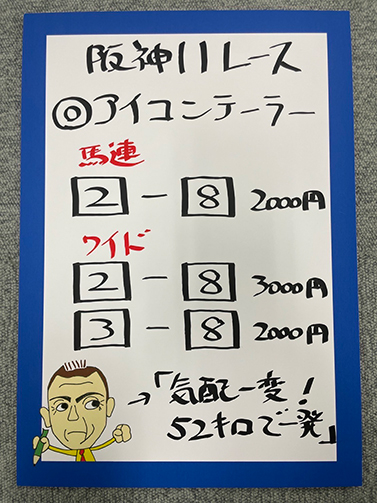 阪神11レース
◎アイコンテーラー
馬連
2－8 2000円
ワイド
2－8 3000円
3－8 2000円
→「気配一変！
52キロで一発」